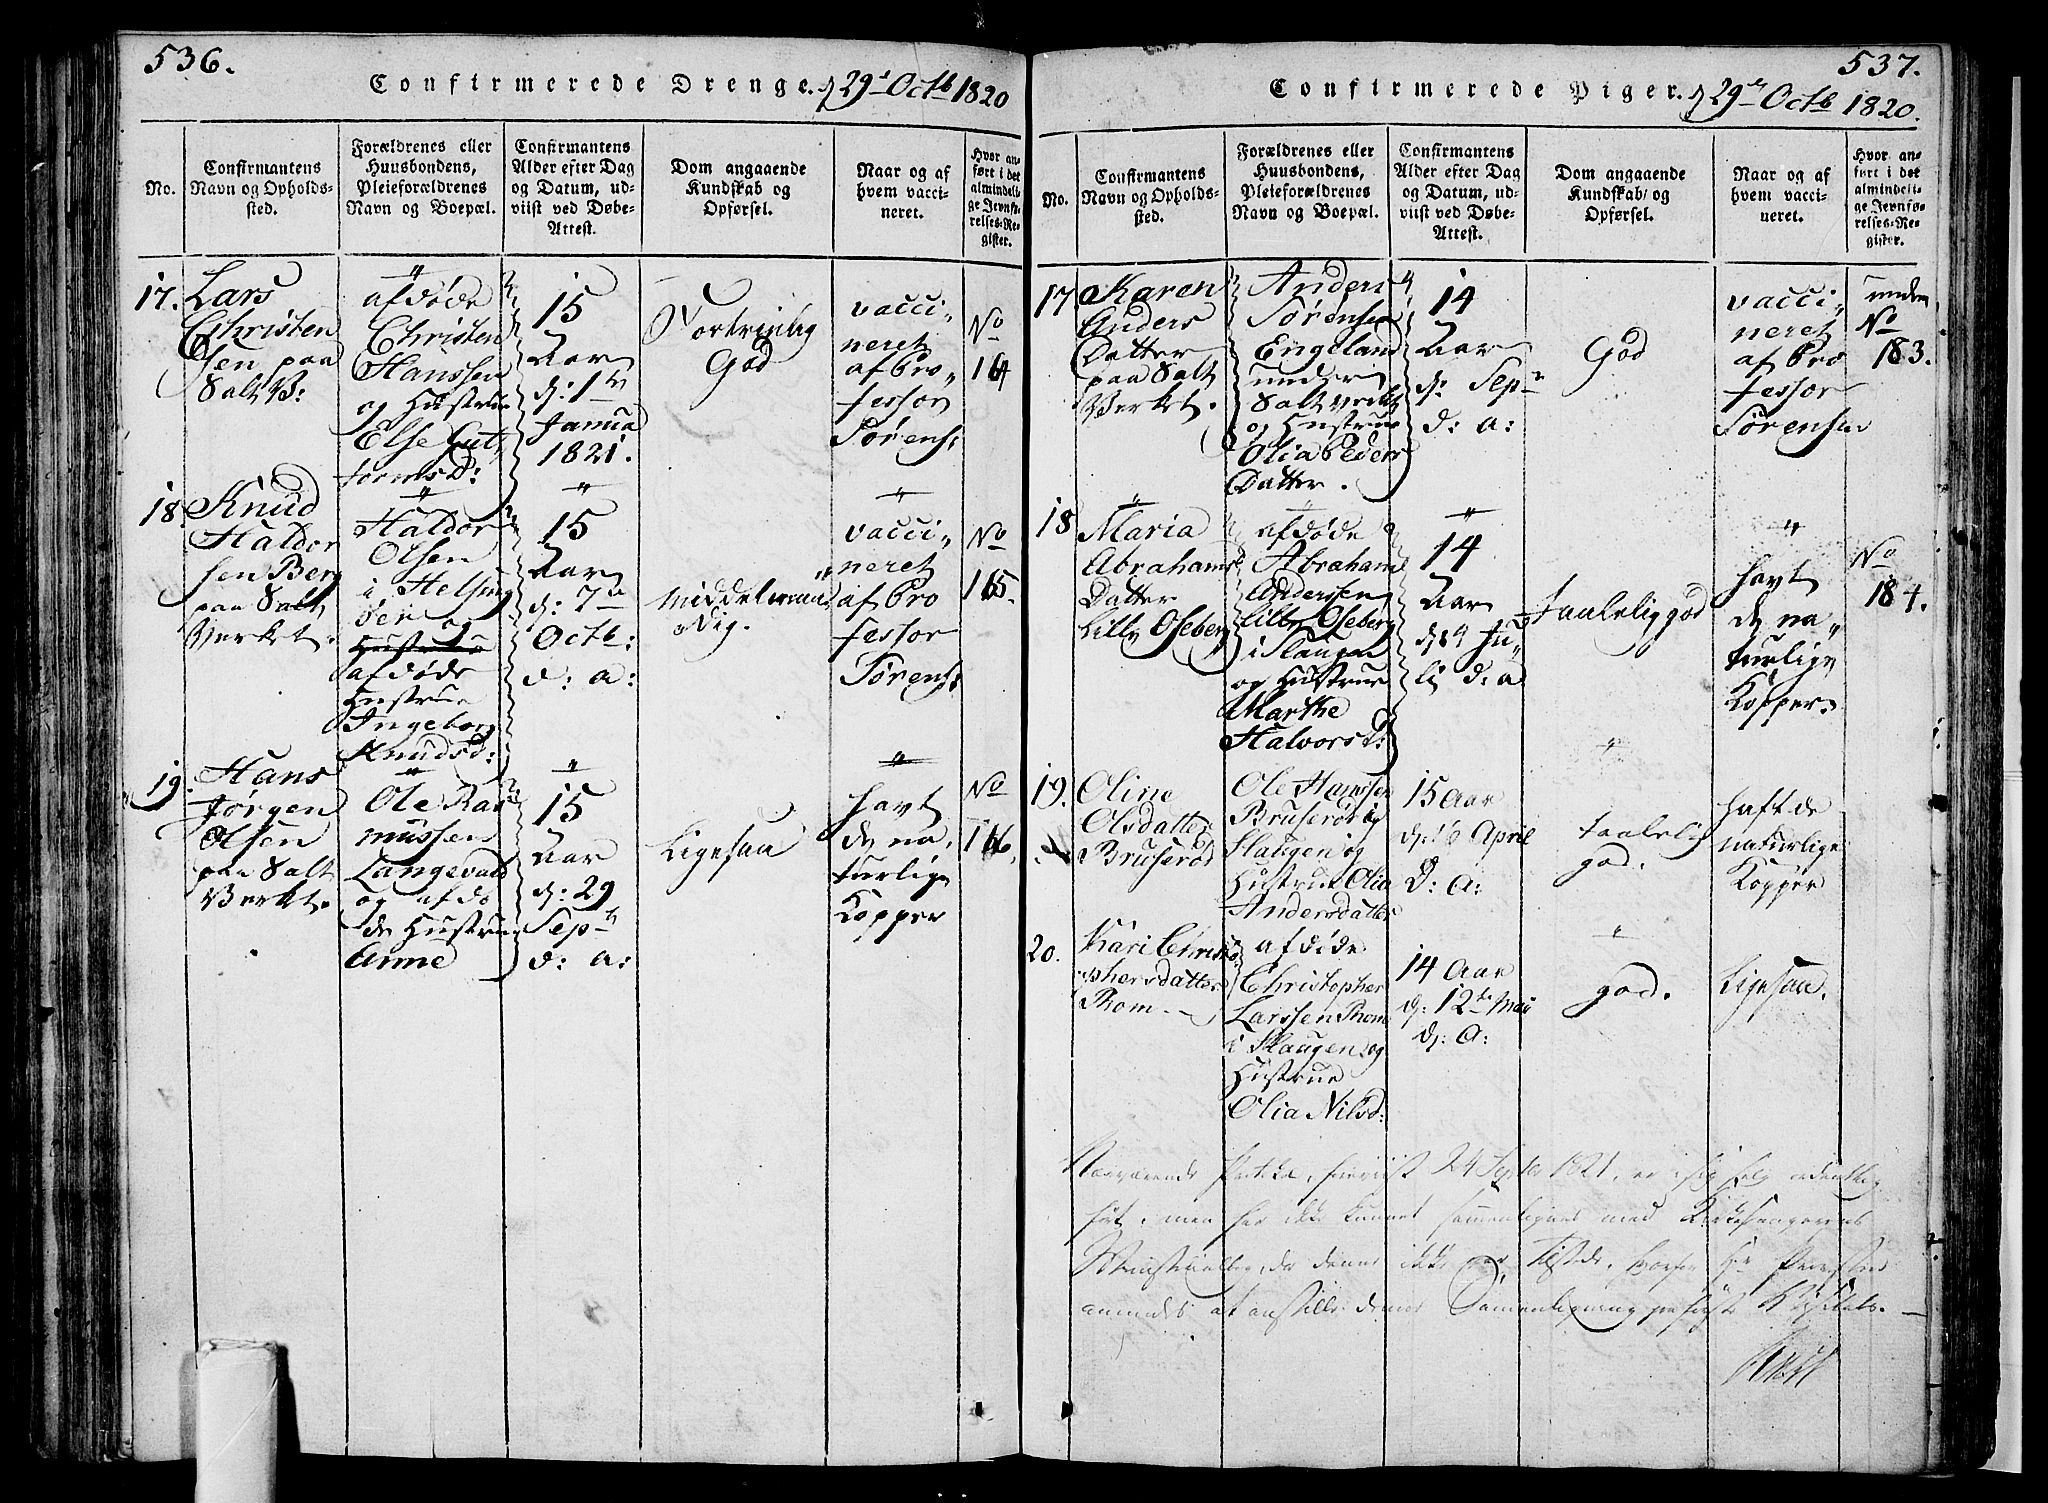 536.
Confirmerede Drenge. d 29de Octb 1820
No.
Confirmantens
Navn og Opholds-
sted.
Forældrenes eller
Huusbondens,
Pleieforældrenes
Navn og Boepæl.
Confirmantens
Alder efter Dag
og Datum, ud-
viist ved Døbe-
Attest.
Dom angaaende
Kundskab og
Opførsel.
Naar og af
hvem vacci-
neret.
Hvor an-
ført i det
almindeli-
ge Jevnfø-
relses-Re-
gister.
17.
Lars
Christen
sen paa
Salt V:
afdøde
Christen
Hanssen
og Hustrue
Else Gut,
formsd:
15
Aar
d: 1te
Janua
1821.
Fortrinlig
God
vacci,,
neret
af Pro,,
fessor
Sørens:
No
164
18.
Knud
Haldor
sen Berg
paa Salt
Verket.
Haldor
Olsen
i Helsing
øer og
Hustrue
afdøde
Hustrue
Ingeborg
Knudsd:
15
Aar
d: 7de
Octb:
d: a:
Middelmaa,,
dig.
vacci,,
neret
af Pro
fessor
Sørens:
No
165.
19.
Hans
Jørgen
Olsen
paa Salt
Verket.
Ole Ras
mussen
Langevald
og afdø
de Hustrue
Anne
15
Aar
d: 29
Sept
d: a:
Ligesaa
havt
de na,
turlige
Kopper
No
166.
537.
Confirmerede Piger. d 29de Octb 1820.
No.
Confirmantens
Navn og Opholds-
sted.
Forældrenes eller
Huusbondens,
Pleieforældrenes
Navn og Boepæl.
Confirmantens
Alder efter Dag
og Datum, ud-
viist ved Døbe-
Attest.
Dom angaaende
Kundskab og
Opførsel.
Naar og af
hvem vacci-
neret.
Hvor an-
ført i det
almindeli-
ge Jevnfø-
relses-Re-
gister.
17
Karen
Anders
Datter
paa Salt
Verket.
Anders
Sørensen
Engeland
under
Salt Verket
og Hustrue
Olia Peders
Datter.
14
Aar
d: Sep
d: a:
God
vacci,,
neret
af Pro
fessor
Sørensen
under
No
183.
18
Maria
Abrahams
Datter
Lille Oseberg
afdøde
Abraham
Anderssen
Lille Oseberg
i Slaugen
og Hustrue
Marthe
Halvorsd:
14
Aar
d: 4 Ju,,
li d: a
Taalelig god
havt
de na,,
turlige
Kopper.
No
184.
19.
Oline
Olsdatter
Bruserød
Ole Hanssen
Bruserød i
Slaugen og
Hustrue Olia
Andersdatter
15 Aar
d: 16 April
d: a:
Taalelig
god.
haft de
naturlige
Kopper
20.
Kari Christo
phersdatter
Rom.
afdøde
Christopher
Larssen Rom
i Slaugen og
Hustrue
Olia Nilsd:
14 Aar
d: 12te Mai
d: a:
god.
Ligesaa.
Nærværende 24 Septbr 1821, er i sig selv ordentlig
ført, men har ikke kunnet sammenlignes med Kirkesangerens
Ministerialbog, da denne ikke var tilstede.
at anstille denne Sammenligning